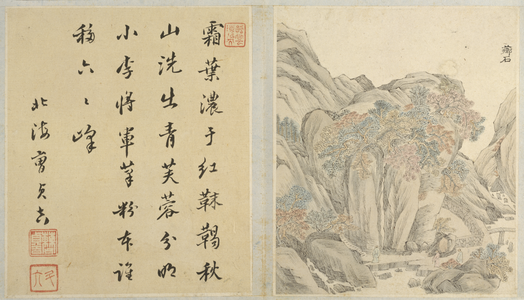 霜葉濃于紅靺鞨秋
山洗出青芙蓉分明
小李將軍筆粉本誰
移六〻峰
北海曹貞吉